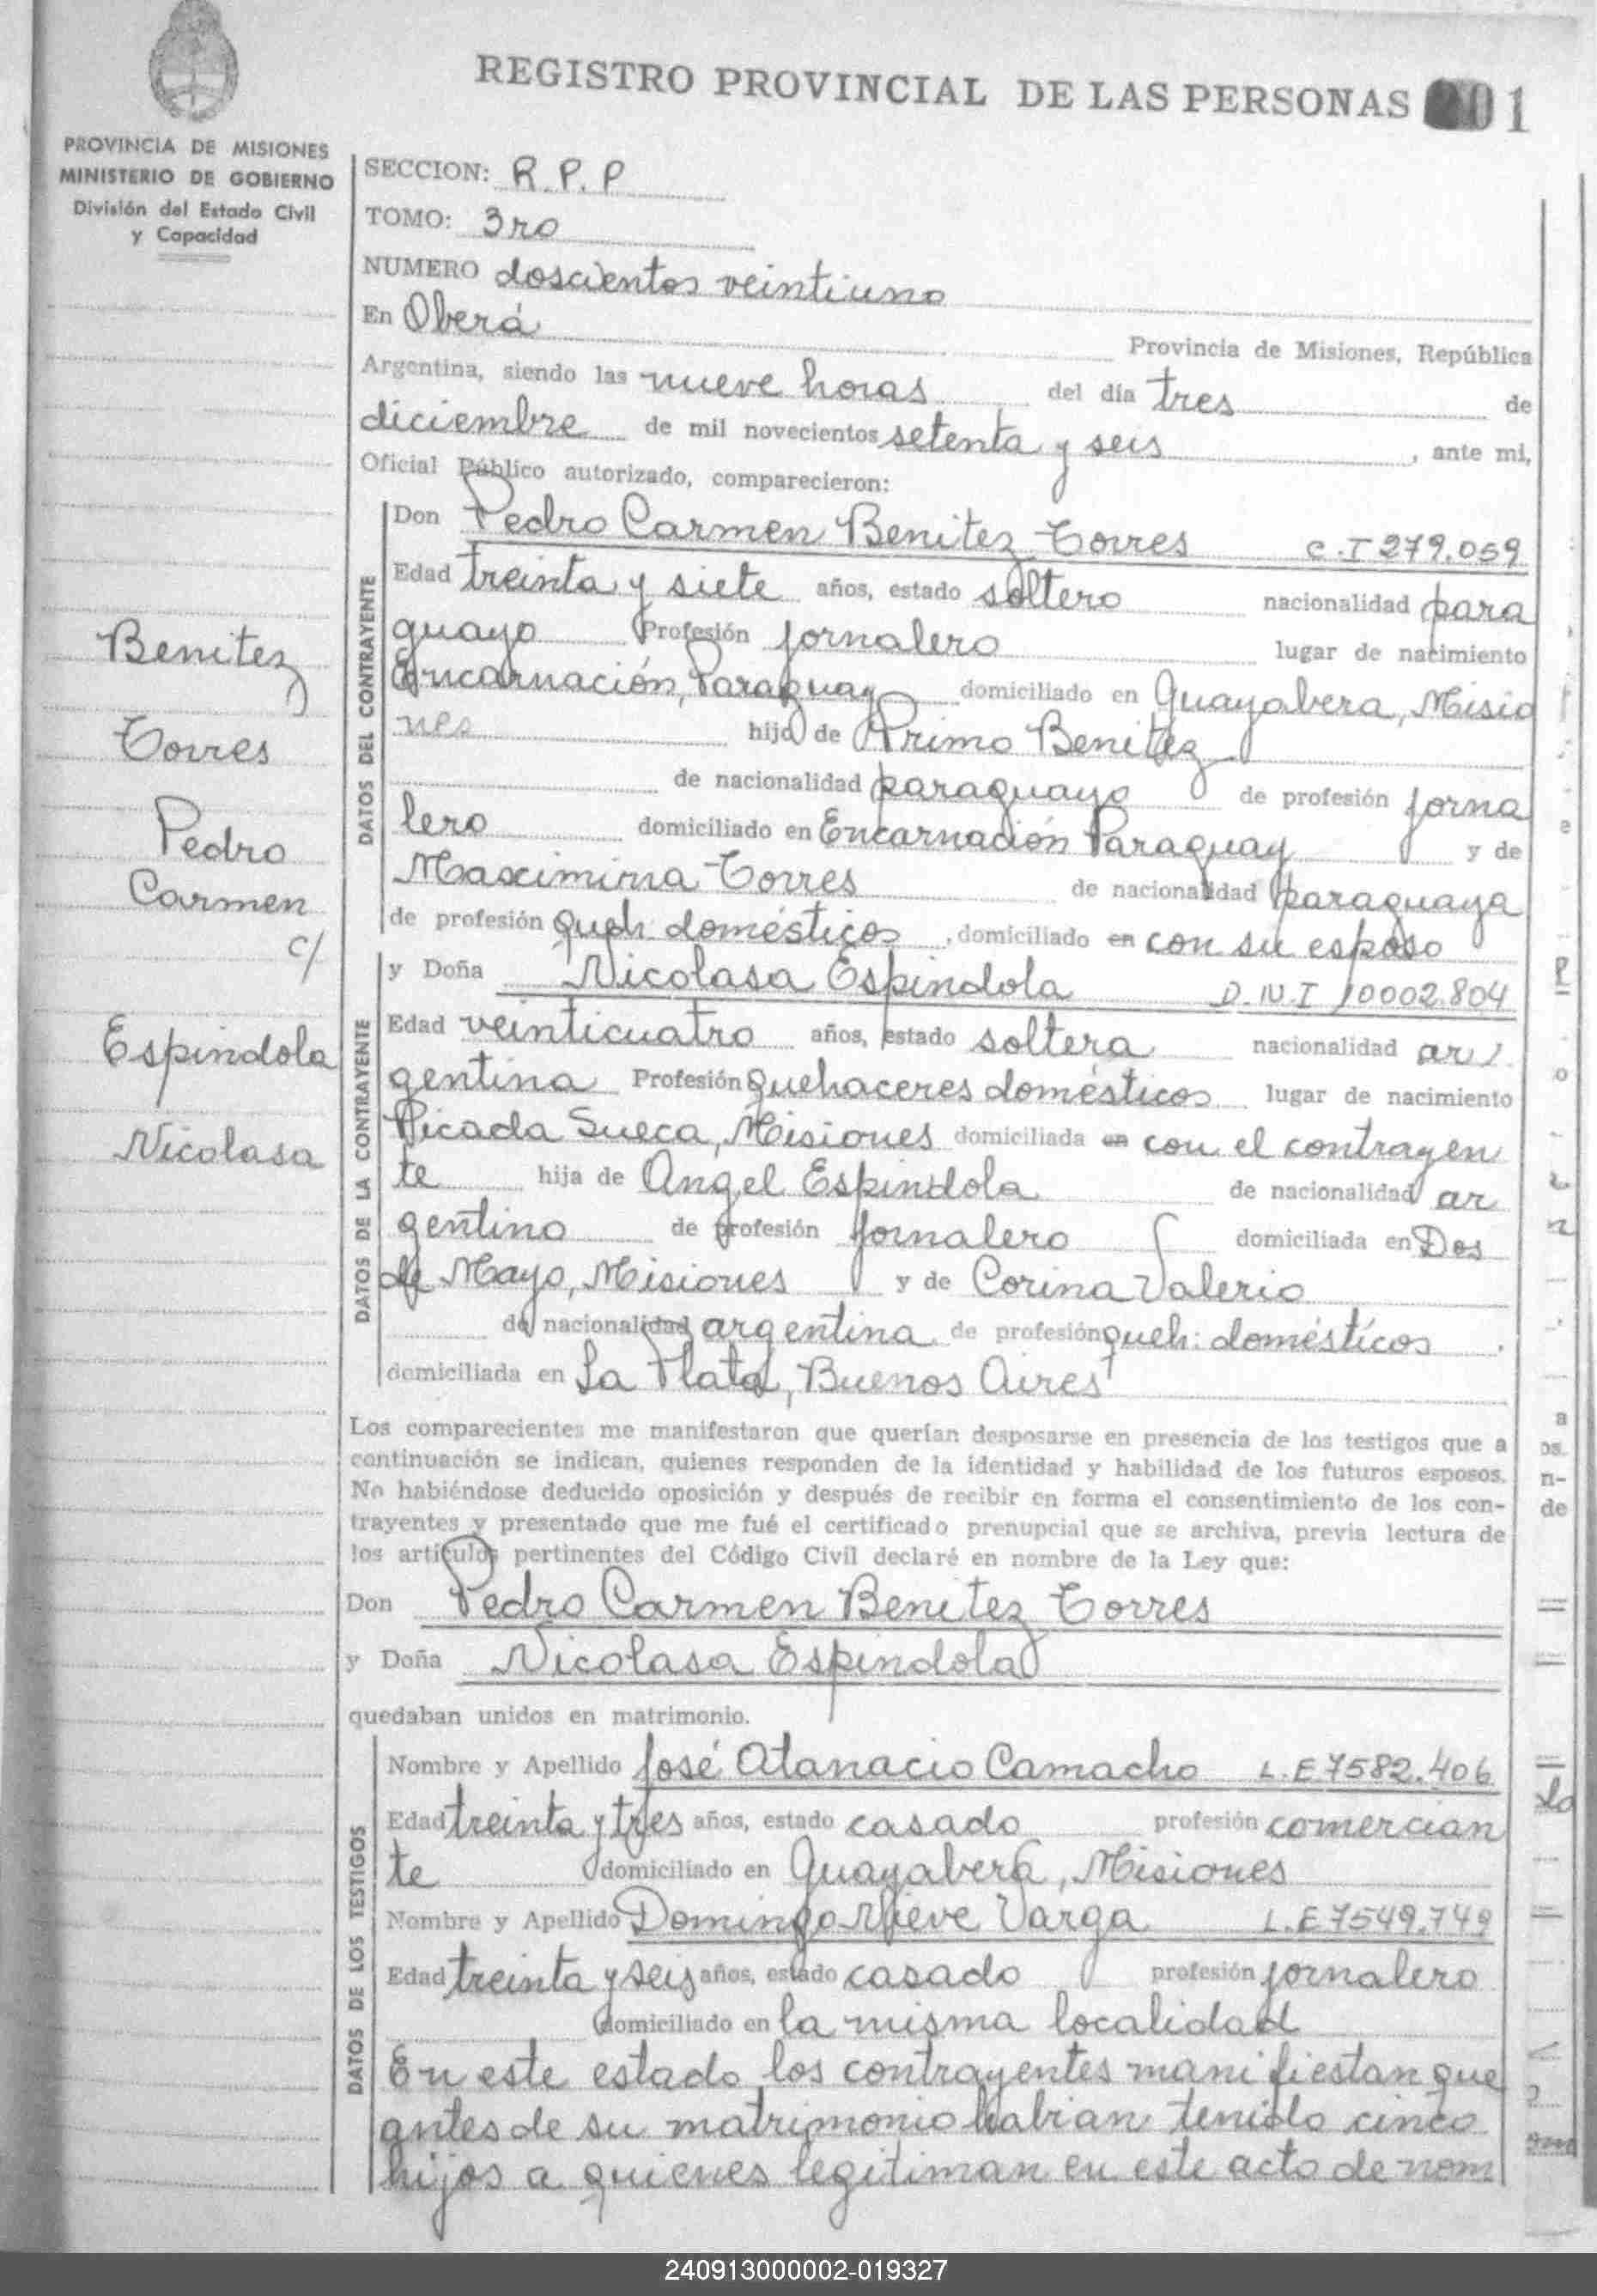 REGISTRO PROVINCIAL DE LAS PERSONAS 01
PROVINCIA DE MISIONES
MINISTERIO DE GOBIERNO
División del Estado Civil
y Capacidad
SECCION: R.P.P
TOMO: 3ro
NUMERO doscientos veintiuno
En Oberá Provincia de Misiones, República
Argentina, siendo las nueve horas del día tres de
diciembre de mil novecientos setenta y seis, ante mi,
Oficial Público autorizado, comparecieron:
Benitez
Torres
Pedro
Carmen
c/
Espindola
Nicolasa
DATOS DEL CONTRAYENTE
Don Pedro Carmen Benitez Torres C.I 279.059
Edad treinta y siete años, estado soltero nacionalidad para
guayo Profesión jornalero lugar de nacimiento
Encarnación, Paraguay domiciliado en Guayabera, Misio
nes hijo de Primo Benitez
de nacionalidad paraguayo de profesión jorna
lero domiciliado en Encarnación Paraguay y de
Maximina Torres de nacionalidad paraguaya
de profesión queh. domésticos, domiciliado en con su esposo
DATOS DE LA CONTRAYENTE
y Doña Nicolasa Espindola D.N.I 10002.804
Edad veinticuatro años, estado soltera nacionalidad ar
gentina Profesión Quehaceres domésticos lugar de nacimiento
Picada Sueca, Misiones domiciliada en con el contrayen
te hija de Angel Espindola de nacionalidad ar
gentino de profesión jornalero domiciliada en Dos
de Mayo, Misiones y de Corina Valerio
de nacionalidad argentina de profesión queh: domésticos
domiciliada en La Plata, Buenos Aires
Los comparecientes me manifestaron que querían desposarse en presencia de los testigos que a
continuación se indican, quienes responden de la identidad y habilidad de los futuros esposos.
No habiéndose deducido oposición y después de recibir en forma el consentimiento de los con-
trayentes y presentado que me fué el certificado prenupcial que se archiva, previa lectura de
los artículos pertinentes del Código Civil declaré en nombre de la Ley que:
Don Pedro Carmen Benitez Torres
y Doña Nicolasa Espindola
quedaban unidos en matrimonio.
DATOS DE LOS TESTIGOS
Nombre y Apellido José Atanacio Camacho L.E 7582.406
Edad treinta y tres años, estado casado profesión comercian
te domiciliado en Guayabera, Misiones
Nombre y Apellido Domingo Nieve Varga L.E 7549.749
Edad treinta y seis años, estado casado profesión jornalero
domiciliado en la misma localidad
En este estado los contrayentes manifiestan que
antes de su matrimonio habian tenido cinco
hijos a quienes legitiman en este acto de nom
240913000002-019327